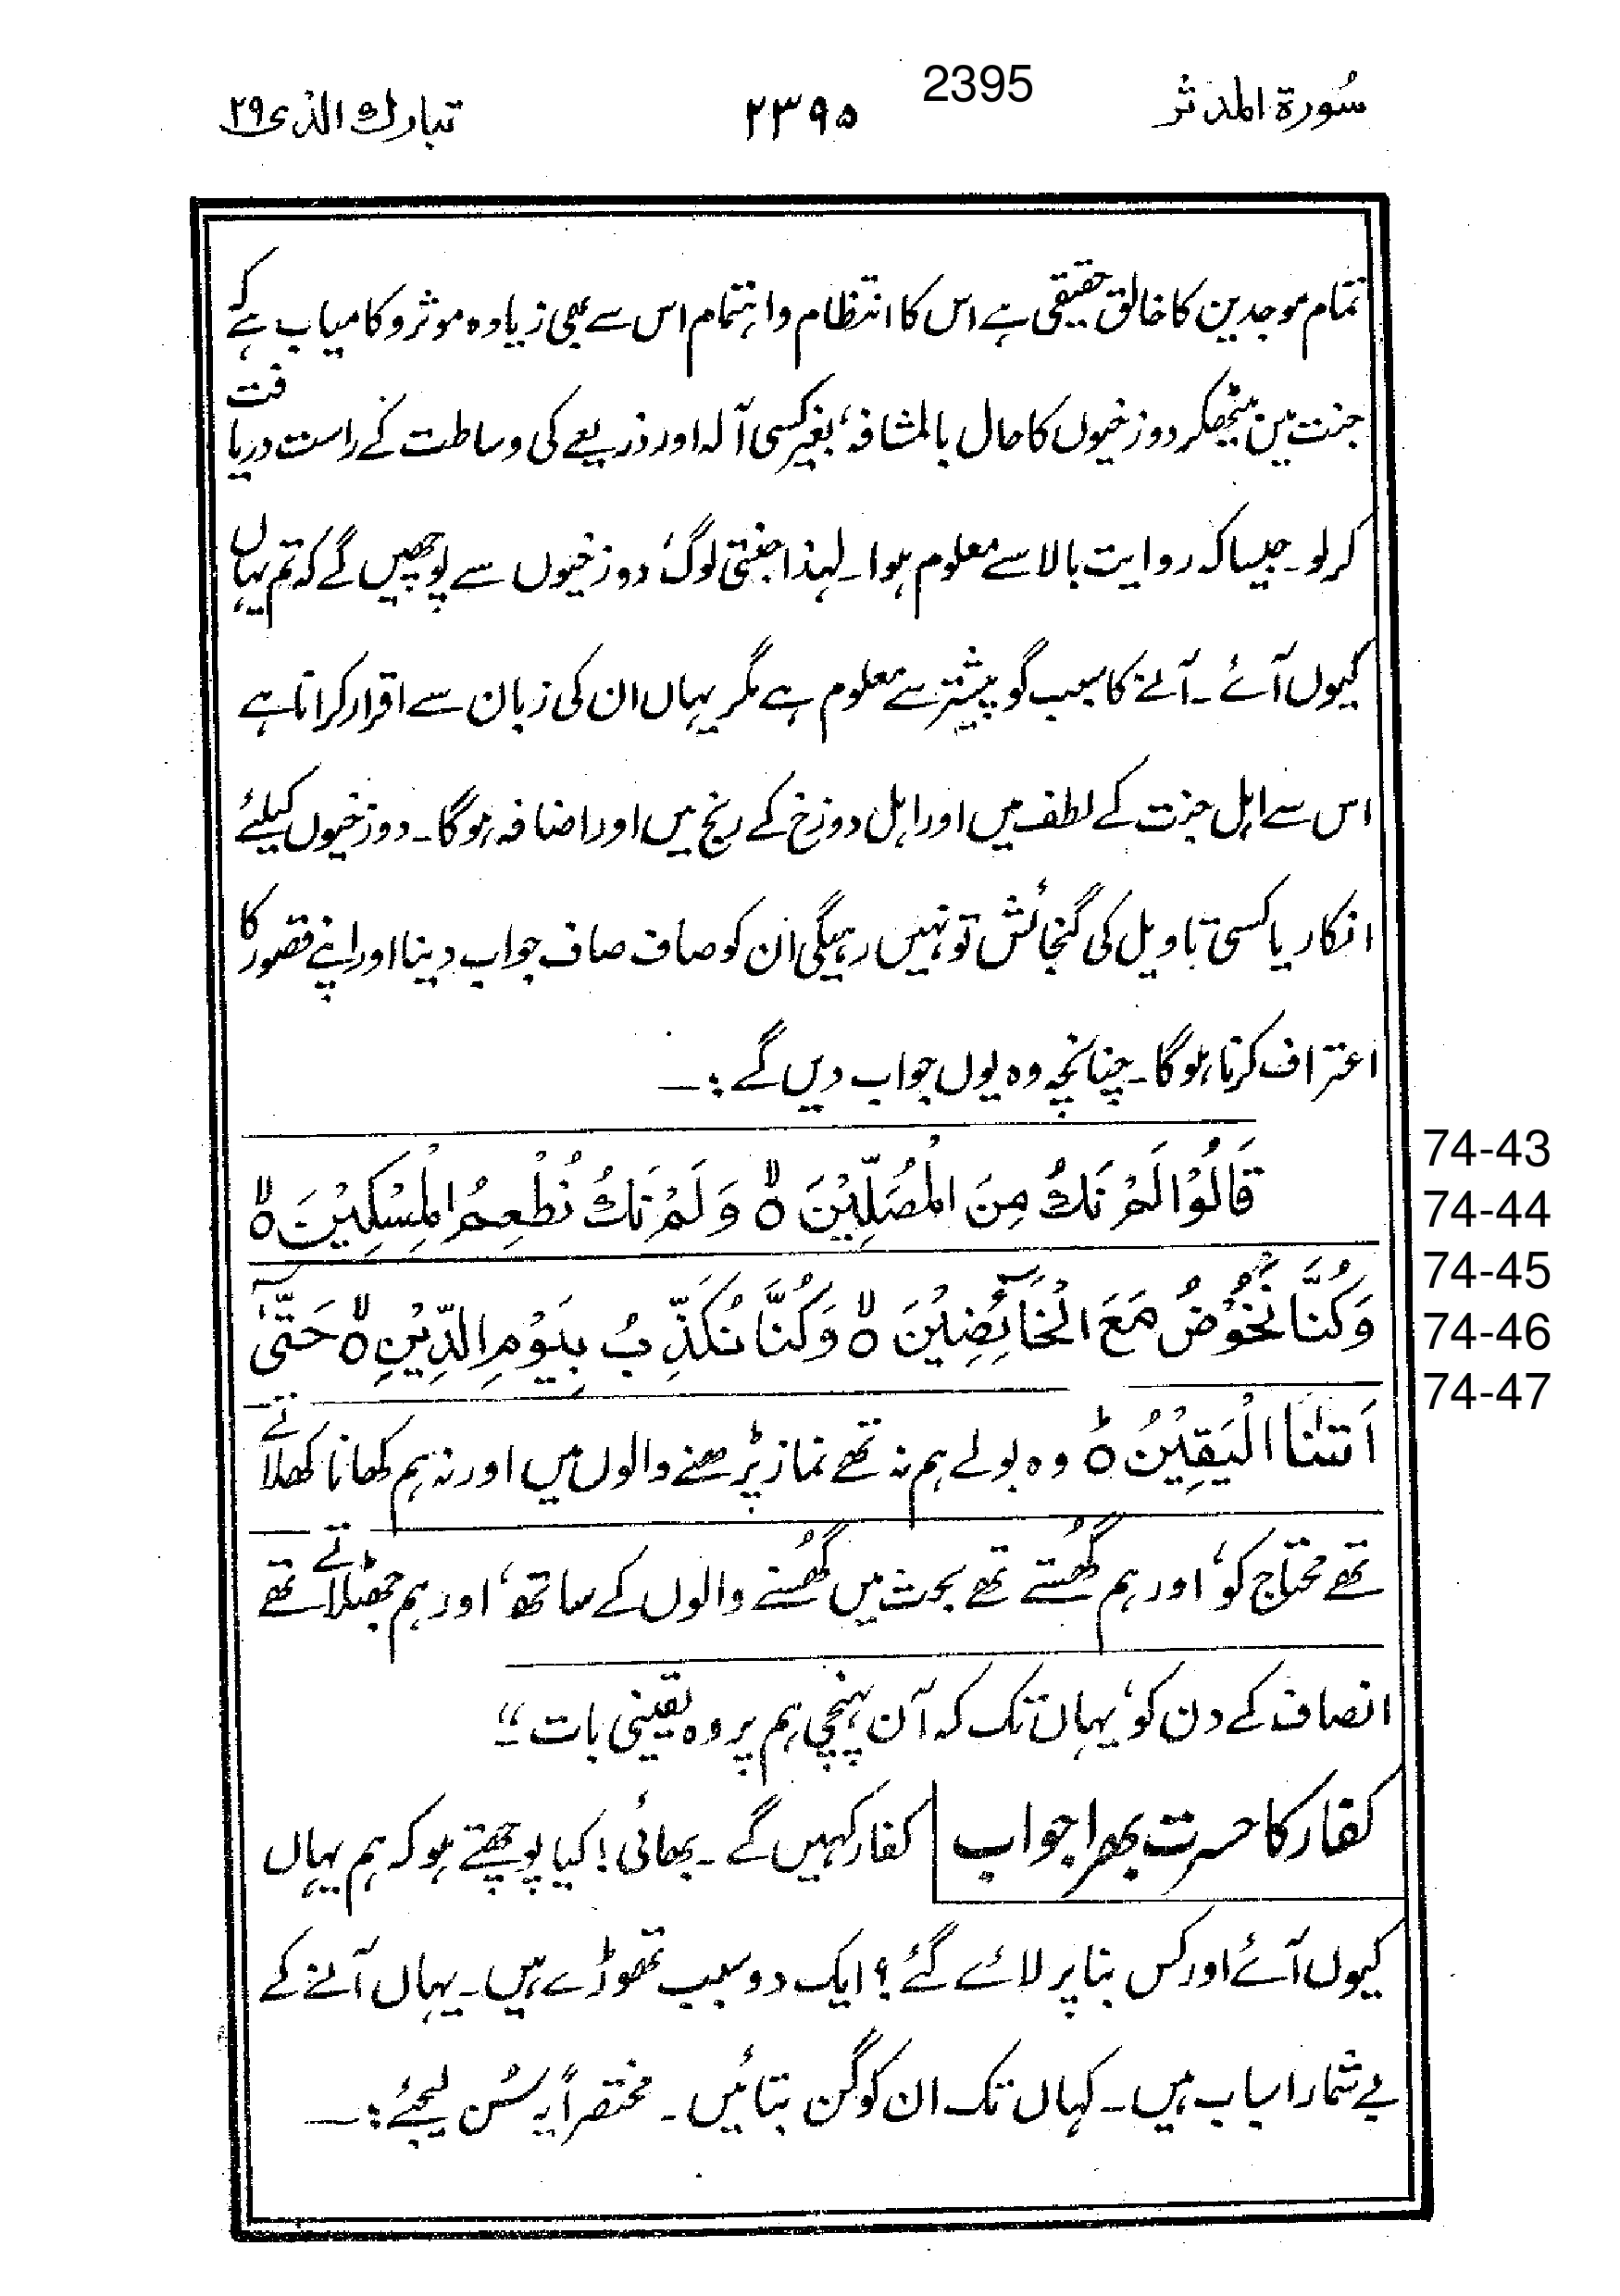 سُورۃ المدثر ۲۳۹۵ 2395 تبارك الذی ۲۹
تمام موجدین کا خالق حقیقی ہے اس کا انتظام و اہتمام اس سے بھی زیادہ موثر و کامیاب ہے کہ
جنت میں بیٹھکر دوزخیوں کا حال بالمشافہ، بغیر کسی آلہ اور ذریعے کی وساطت کے راست دریافت
کرلو۔ جیسا کہ روایت بالا سے معلوم ہوا۔ لہذا جنتی لوگ، دوزخیوں سے پوچھیں گے کہ تم یہاں
کیوں آئے۔ آنے کا سبب گو پیشتر سے معلوم ہے مگر یہاں ان کی زبان سے اقرار کرانا ہے
اس سے اہل جنت کے لطف میں اور اہل دوزخ کے رنج میں اور اضافہ ہوگا۔ دوزخیوں کیلئے
انکار یا کسی تاویل کی گنجائش تو نہیں رہیگی ان کو صاف صاف جواب دینا اور اپنے قصور کا
اعتراف کرنا ہوگا۔ چنانچہ وہ یوں جواب دیں گے :۔
قَالُوْا لَمْ نَكُ مِنَ الْمُصَلِّيْنَ ۙ وَلَمْ نَكُ نُطْعِمُ الْمِسْكِيْنَ ۙ 74-43
74-44
وَكُنَّا نَخُوْضُ مَعَ الْخَآئِضِيْنَ ۙ وَكُنَّا نُكَذِّبُ بِيَوْمِ الدِّيْنِ ۙ حَتّٰىٓ 74-45
74-46
اَتٰىنَا الْيَقِيْنُ ؕ وہ بولے ہم نہ تھے نماز پڑھنے والوں میں اور نہ ہم کھانا کھلاتے 74-47
تھے محتاج کو، اور ہم گھُستے تھے بحث میں گھُسنے والوں کے ساتھ، اور ہم جھٹلاتے تھے
انصاف کے دن کو، یہاں تک کہ آن پہنچی ہم پر وہ یقینی بات“۔
کفار کا حسرت بھرا جواب کفار کہیں گے۔ بھائی! کیا پوچھتے ہو کہ ہم یہاں
کیوں آئے اور کس بنا پر لائے گئے؟ ایک دو سبب تھوڑے ہیں۔ یہاں آنے کے
بے شمار اسباب ہیں۔ کہاں تک ان کو گن بتائیں۔ مختصراً یہ سُن لیجئے :۔